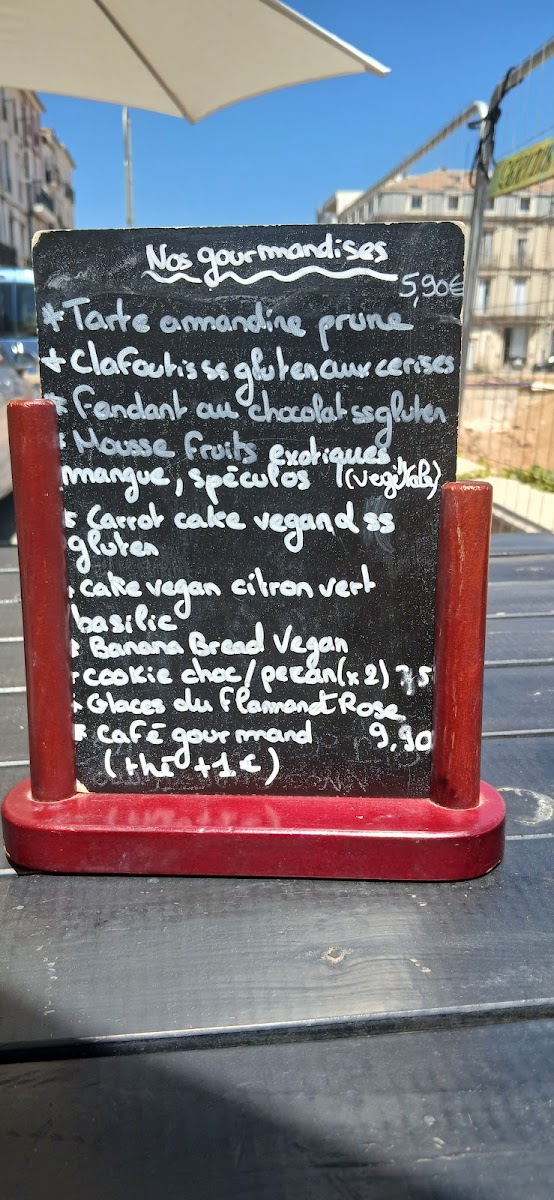 Nos gourmandises
5,90€
* Tarte amandine prune
* Clafoutis ss gluten aux cerises
* Fondant au chocolat ss gluten
* Mousse fruits exotiques
mangue, spéculos (végétale)
* Carrot cake vegan d ss
gluten
* cake vegan citron vert
basilic
* Banana Bread Vegan
* cookie choc/pecan (x2)
* Glaces du Flamant Rose
* café gourmand 9,90
(thé +1€)